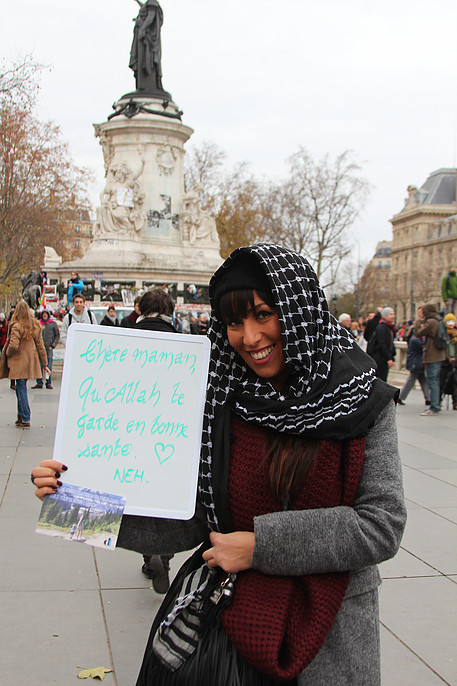 Chère maman,
Qu'Allah te
garde en bonne
santé. ♡
NEH.